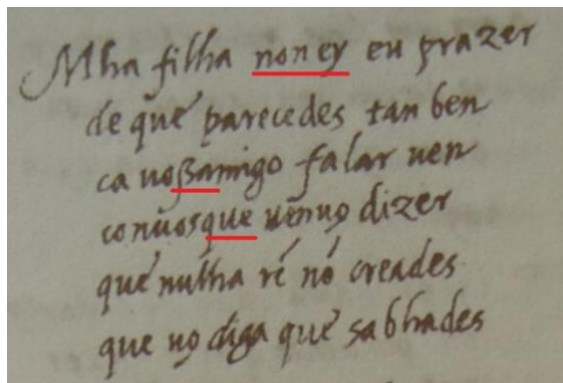 Mha filha noney eu prazer
de que parecedes tan ben
ca uoßamigo falar uen
conuosque uenuꝯ dizer
que nulha ré nó creades
que uꝯ diga que sabhades